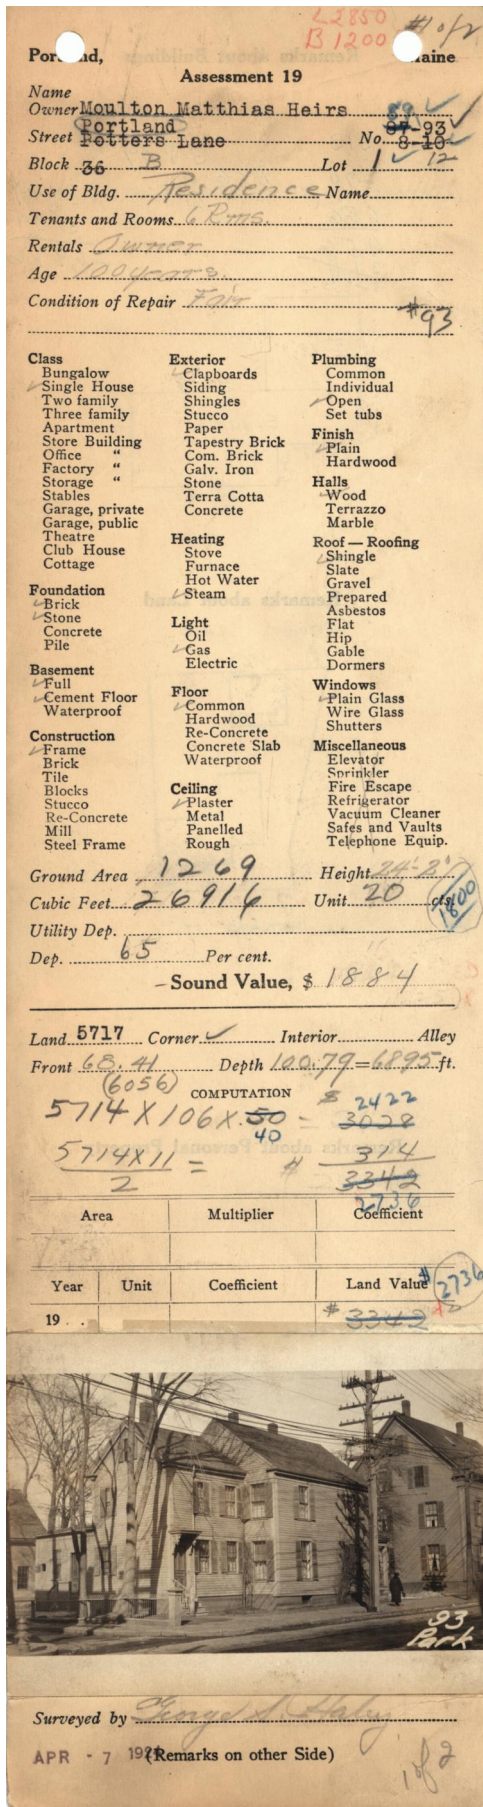 L2850
B1200
#1 of 2
Portland, Maine
Assessment 19
Name
Owner Moulton Matthias Heirs
89
Portland
87-93
Street Potters Lane No. 8-10
Block 36 B Lot 1 12
Use of Bldg. Residence Name
Tenants and Rooms 6 Rms.
Rentals Owner
Age 100 years.
Condition of Repair Fair
#93
Class
Bungalow
Single House
Two family
Three family
Apartment
Store Building
Office "
Factory "
Storage "
Stables
Garage, private
Garage, public
Theatre
Club House
Cottage
Foundation
Brick
Stone
Concrete
Pile
Basement
Full
Cement Floor
Waterproof
Construction
Frame
Brick
Tile
Blocks
Stucco
Re-Concrete
Mill
Steel Frame
Exterior
Clapboards
Siding
Shingles
Stucco
Paper
Tapestry Brick
Com. Brick
Galv. Iron
Stone
Terra Cotta
Concrete
Heating
Stove
Furnace
Hot Water
Steam
Light
Oil
Gas
Electric
Floor
Common
Hardwood
Re-Concrete
Concrete Slab
Waterproof
Ceiling
Plaster
Metal
Panelled
Rough
Plumbing
Common
Individual
Open
Set tubs
Finish
Plain
Hardwood
Halls
Wood
Terrazzo
Marble
Roof — Roofing
Shingle
Slate
Gravel
Prepared
Asbestos
Flat
Hip
Gable
Dormers
Windows
Plain Glass
Wire Glass
Shutters
Miscellaneous
Elevator
Sprinkler
Fire Escape
Refrigerator
Vacuum Cleaner
Safes and Vaults
Telephone Equip.
Ground Area 1269 Height
Cubic Feet 26916 Unit 20 cts.
1800
Utility Dep.
Dep. 65 Per cent.
Sound Value, $ 1884
Land 5717 Corner Interior Alley
Front 68.41 Depth 100.79=6895 ft.
(6056)
COMPUTATION
$ 2422
5714 X 106 X .50 = 3028
40
5714X11 = # 314
2 3342
2736
Area Multiplier Coefficient
Year Unit Coefficient Land Value
$ 2736
19 . . $ 3342
93
Park
Surveyed by George S. Haley
APR - 7 192 (Remarks on other Side)
1 of 2